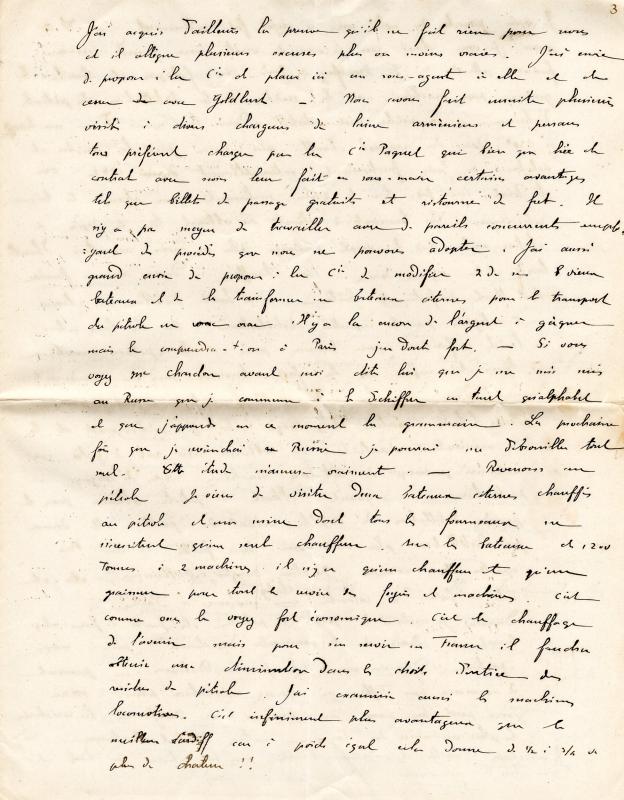 3
J'ai acquis d'ailleurs la preuve qu'il ne fait rien pour nous
et il allègue plusieurs excuses plus ou moins vraies. J'ai envie
de proposer à la Cie de placer ici un sous-agent à elle et de
cesser de avec Goldlust — Nous avons fait ensuite plusieurs
visites à divers chargeurs de laine arméniens et persans
tous préfèrent charger par la Cie Paquet qui bien que liée de
contrat avec nous leur fait en sous-main certains avantages
tels que billets de passage gratuits et ristourne de fret. Il
n'y a pas moyen de travailler avec de pareils concurrents emplo-
yant des procédés que nous ne pouvons adopter. J'ai aussi
grand envie de proposer à la Cie de modifier 2 de nos 8 vieux
bateaux et de les transformer en bateaux citernes pour le transport
du pétrole en vrac. Il y a là encore de l'argent à gagner
mais le comprendra-t-on à Paris j'en doute fort. — Si vous
voyez Mr chardon avant moi dites lui que je me suis mis
au Russe que je commence à le déchiffrer en tant qu'alphabet
et que j'apprends en ce moment la grammaire. La prochaine
fois que je reviendrai en Russie je pourrai me débrouiller tout
seul. Cette étude m'amuse vraiment. — Revenons au
pétrole Je viens de visiter deux bateaux citernes chauffés
au pétrole et une usine dont tous les fourneaux ne
nécessitent qu'un seul chauffeur. Sur les bateaux de 1200
Tonnes à 2 machines il n'y a qu'un chauffeur et qu'un
graisseur pour tout le service des foyers et machines. C'est
comme vous le voyez fort économique. C'est le chauffage
de l'avenir mais pour s'en servir en France il faudra
obtenir une diminution dans les droits d'entrée des
résidus de pétrole. J'ai examiné aussi les machines
locomotives. C'est infiniment plus avantageux que le
meilleur Cardiff car à poids égal cela donne de 1/2 à 3/4 de
plus de chaleur !!